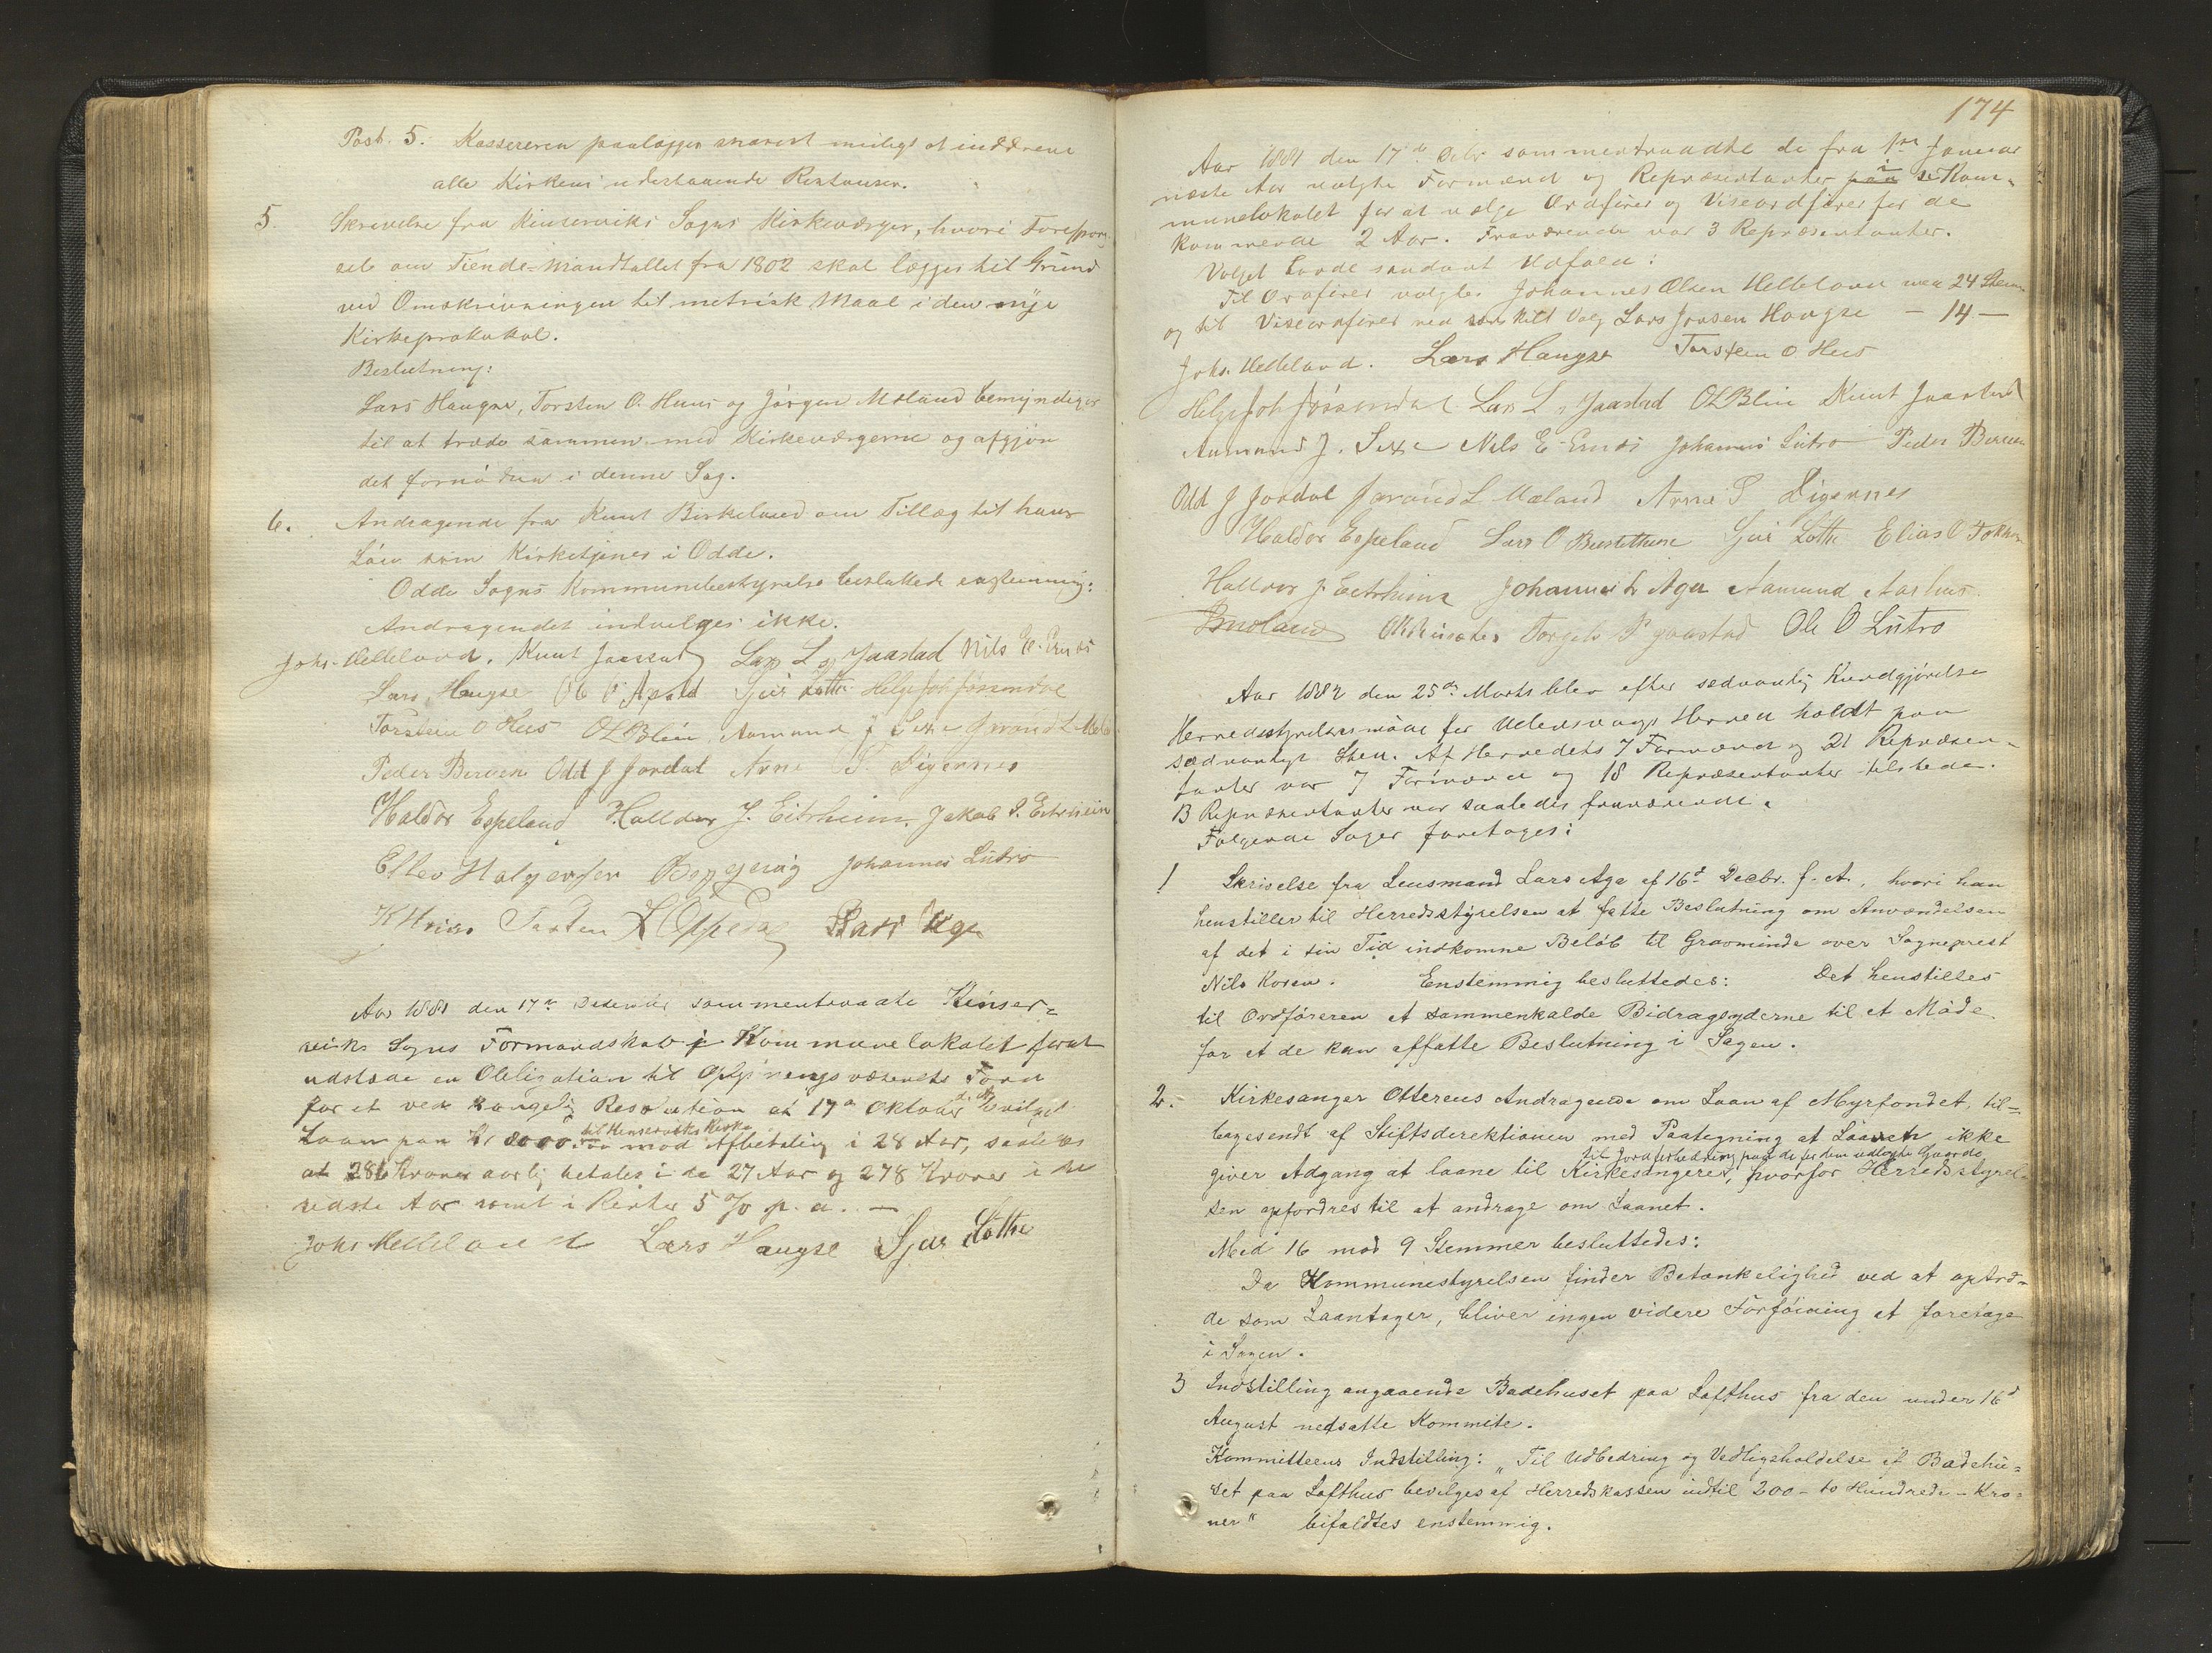 Post. 5. Kassereren paalægges snarest muligt at inddrive
alle Kirkens udestaaende Restanser.
5. Skrivelse fra Kinserviks Sogns Kirkeværger, hvori Forespørg-
sel om Tiende-Mandtallet fra 1802 skal lægges til Grund
ved Omskrivningen til metrisk Maal i den nye
Kirkeprotokol.
Beslutning:
Lars Haugse, Torsten O. Huus og Jörgen Moland bemyndiges
til at træde sammen med Kirkeværgerne og afgjöre
det fornödne i denne Sag.
6. Andragende fra Knut Birkeland om Tillæg til hans
Lön som Kirketjener i Odde.
Odde Sogns Kommunebestyrelse besluttede enstemmig:
Andragendet indvilges ikke.
Johs. Helleland. Knut Jaastad Lars L. Jaastad Nils E. Ernæs
Lars Haugse Ole O Apold Sjur Lothe Helge Joh Jösendal
Torstein O Hus OLBleie Aamund J Sexe Jørand L Mæland
Peder Berven Odd J Jordal Arne S. Digernes
Haldor Espeland Halldor J. Eitrheim. Jakob S. Eitrheim
Ellev Halgersen Johannes Lutro
Torsten L Opedal Lars Aga
Aar 1881 den 17de December sammentraadte Kinser-
viks Sogns Formandskab i Kommunelokalet forat
udstæde en Obligation til Oplysningsvæsenets Fond
for et ved kongelig Resolution af 17de Oktober d. A. bevilget
Laan paa Kr 8000 til Kinserviks Kirke mod Afbetaling i 28 Aar, saaledes
at 286 Kroner aarlig betales i de 27 Aar og 278 Kroner i det
sidste Aar samt i Renter 5 % p. a. —
Johs Helleland Lars Haugse Sjur Lothe
174
Aar 1881 den 17de Decbr sammentraadte de fra 1ste Januar
næste Aar valgte Formænd og Repræsentanter paa i Kom-
munelokalet for at vælge Ordförer og Viseordförer for de
kommende 2 Aar. Fraværende var 3 Repræsentanter.
Valget havde saadant Udfald:
Til Ordförer valgtes Johannes Olsen Helleland med 24 Stem.
og til Viseordförer ved særskilt Valg Lars Jonsen Haugse — 14 —
Johs. Helleland. Lars Haugse Torstein O Hus
Helge Joh Jösendal Lars L. Jaastad OLBleie Knut Jaastad
Aamund J. Sexe Nils E. Ernæs Johannes Lutro Peder Berven
Odd J Jordal Jørand L Mæland Arne S Digernes
Haldor Espeland Lars O Bustetun Sjur Lothe Elias O
Halldor J. Eitrheim Johannes Aga Aamund Aarhus.
JMoland Torgils Jaastad Ole O Lutro
Aar 1882 den 25de Marts blev efter sædvanlig Kundgjörelse
Herredsstyrelsesmöde for Ullensvangs Herred holdt paa
sædvanligt Sted. Af Herredets 7 Formænd og 21 Repræsen-
tanter var 7 Formænd og 18 Repræsentanter tilstede.
3 Repræsentanter var saaledes fraværende.
Fölgende Sager foretoges:
1 Skrivelse fra Lensmand Lars Aga af 16d Decbr. f. A., hvori han
henstiller til Herredsstyrelsen at fatte Beslutning om Anvendelsen
af det i sin Tid indkomne Belöb til Gravminde over Sogneprest
Nils Koren. Enstemmig besluttedes: Det henstilles
til Ordföreren at sammenkalde Bidragsyderne til et Möde
for at de kan affatte Beslutning i Sagen.
2. Kirkesanger Ottereus Andragende om Laan af Myrfondet til-
bagesendt af Stiftsdirektionen med Paategning at Laanet ikke
giver Adgang at laane til Kirkesangeres til Jordforbedring paa de for dem udlagte Gaarde, hvorfor Herredsstyrel-
sen opfordres til at andrage om Laanet.
Med 16 mod 9 Stemmer besluttedes:
Da Kommunestyrelsen finder Betænkelighed ved at optræ-
de som Laantager, bliver ingen videre Forföining at foretage
i Sagen.
3 Indstilling angaaende Badehuset paa Lofthus fra den under 16d
August nedsatte Kommite.
Kommitteens Indstilling: „Til Udbedring og Vedligeholdelse af Badehu-
set paa Lofthus bevilges af Herredskassen indtil 200 - to Hundrede - Kro-
ner" bifaldtes enstemmig.